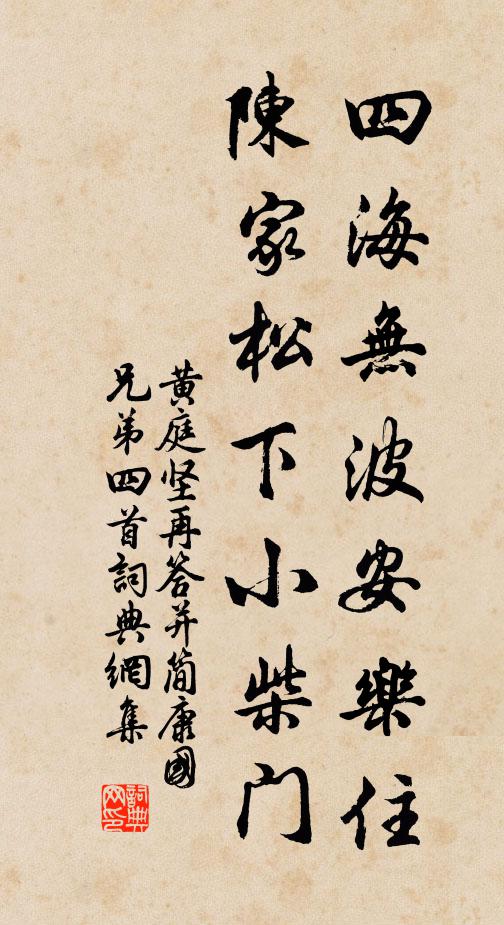 四海無波安樂住
陳家松下小柴門
黄庭坚再答并简康國
兄弟四首詞典網集
詞典网印